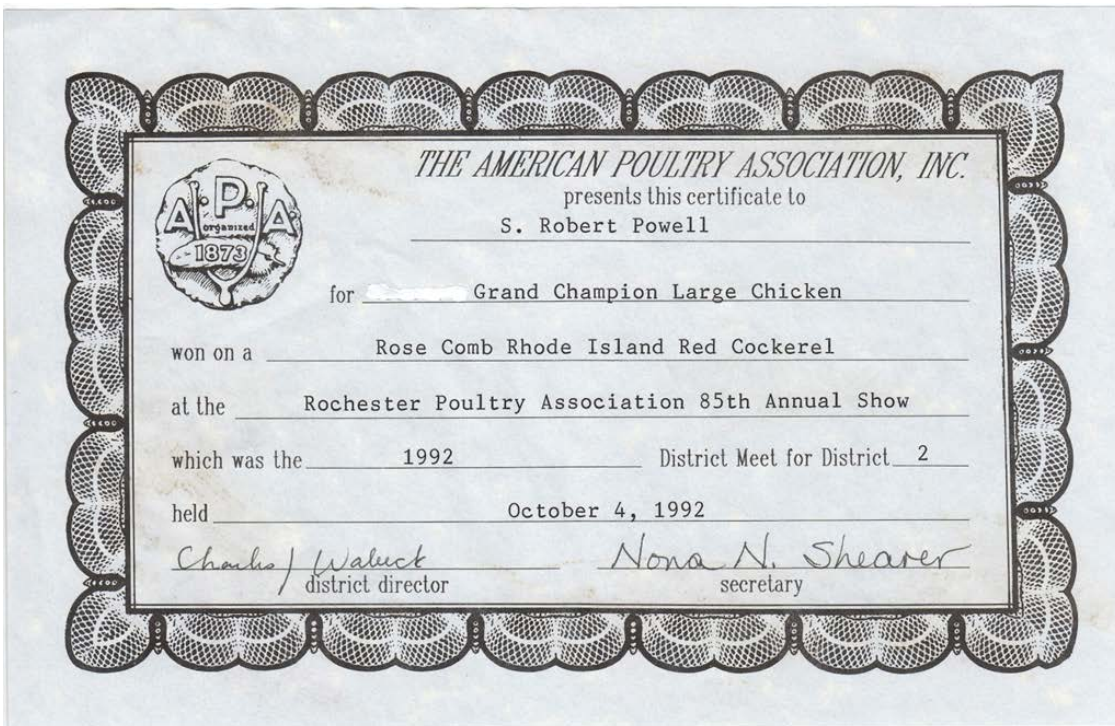 THE AMERICAN POULTRY ASSOCIATION, INC.
presents this certificate to
S. Robert Powell
A.P.A.
organized
1873
for Grand Champion Large Chicken
won on a Rose Comb Rhode Island Red Cockerel
at the Rochester Poultry Association 85th Annual Show
which was the 1992 District Meet for District 2
held October 4, 1992
Charles J Wabeck Nona N. Shearer
district director secretary